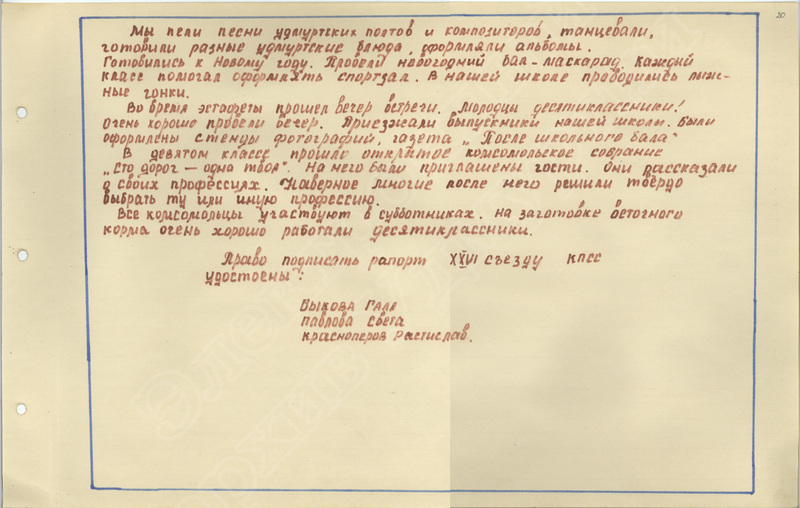 20
Мы пели песни удмуртских поэтов и композиторов, танцевали,
готовили разные удмуртские блюда, оформляли альбомы.
Готовились к Новому году. Провели новогодний бал-маскарад. Каждый
класс помогал оформлять спортзал. В нашей школе проводились лыж-
ные гонки.
Во время эстафеты прошел вечер встречи. Молодцы десятиклассники!
Очень хорошо провели вечер. Приезжали выпускники нашей школы. Были
оформлены стенды фотографий, газета „После школьного бала“
В девятом классе прошло открытое комсомольское собрание
„Сто дорог — одна твоя“. На него были приглашены гости. Они рассказали
о своих профессиях. Наверное многие после него решили твердо
выбрать ту или иную профессию.
Все комсомольцы участвуют в субботниках. На заготовке веточного
корма очень хорошо работали десятиклассники.
Право подписать рапорт XXVI съезду КПСС
удостоены:
Быкова Галя
Павлова Света
Красноперов Растислав.